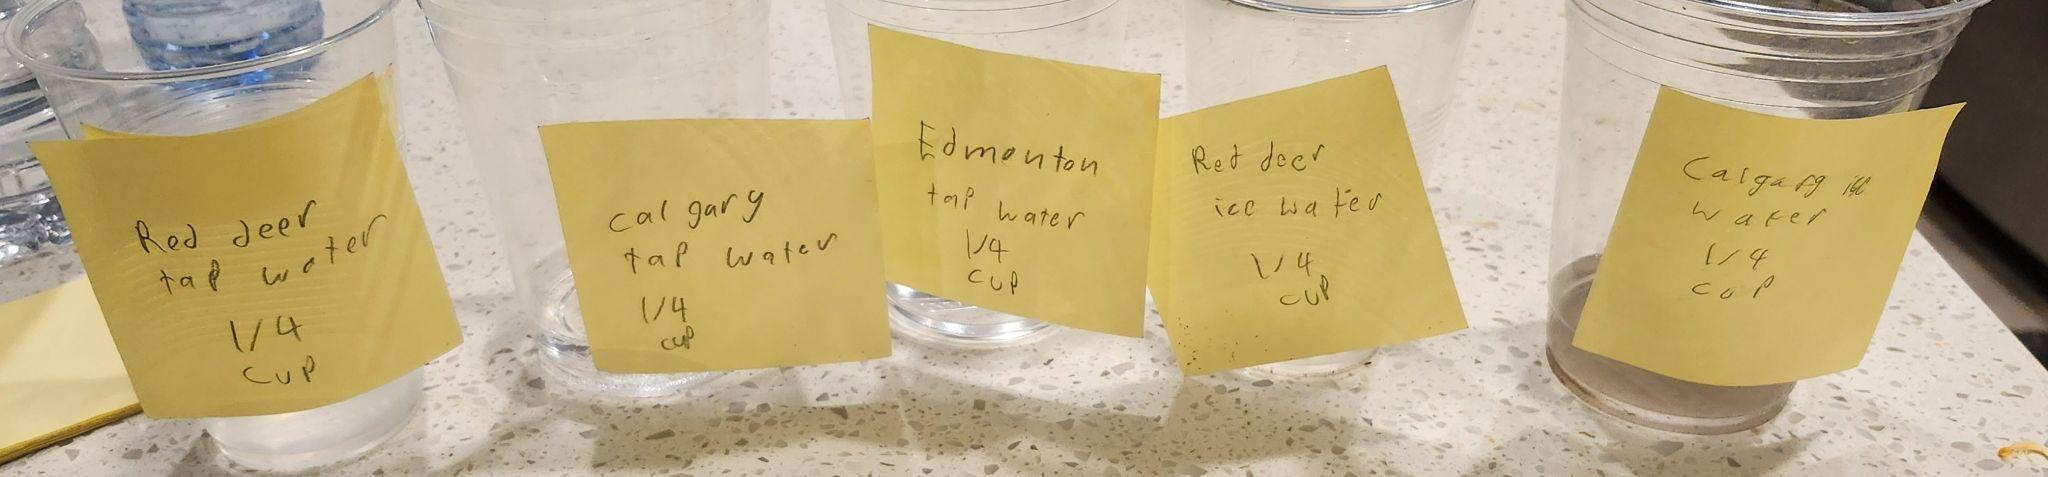 Red deer
tap water
1/4
cup
calgary
tap water
1/4
cup
Edmonton
tap water
1/4
cup
Red deer
ice water
1/4
cup
Calgary ice
water
1/4
cup